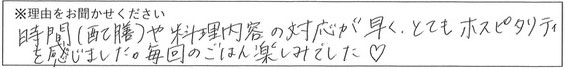 ※理由をお聞かせください
時間(配膳)や料理内容の対応が早く、とてもホスピタリティ
を感じました。毎回のごはん楽しみでした♡